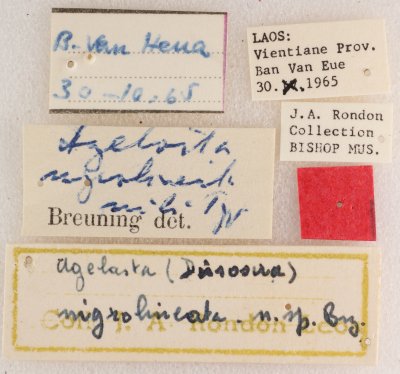 B. Van Heua
30-10.65
LAOS:
Vientiane Prov.
Ban Van Eue
30.X.1965
J.A. Rondon
Collection
BISHOP MUS.
Agelasta
mihi Typ
Breuning det.
Agelasta (Dissosira)
nigrolineata. n. sp. Brg.
Coll. J. A. Rondon